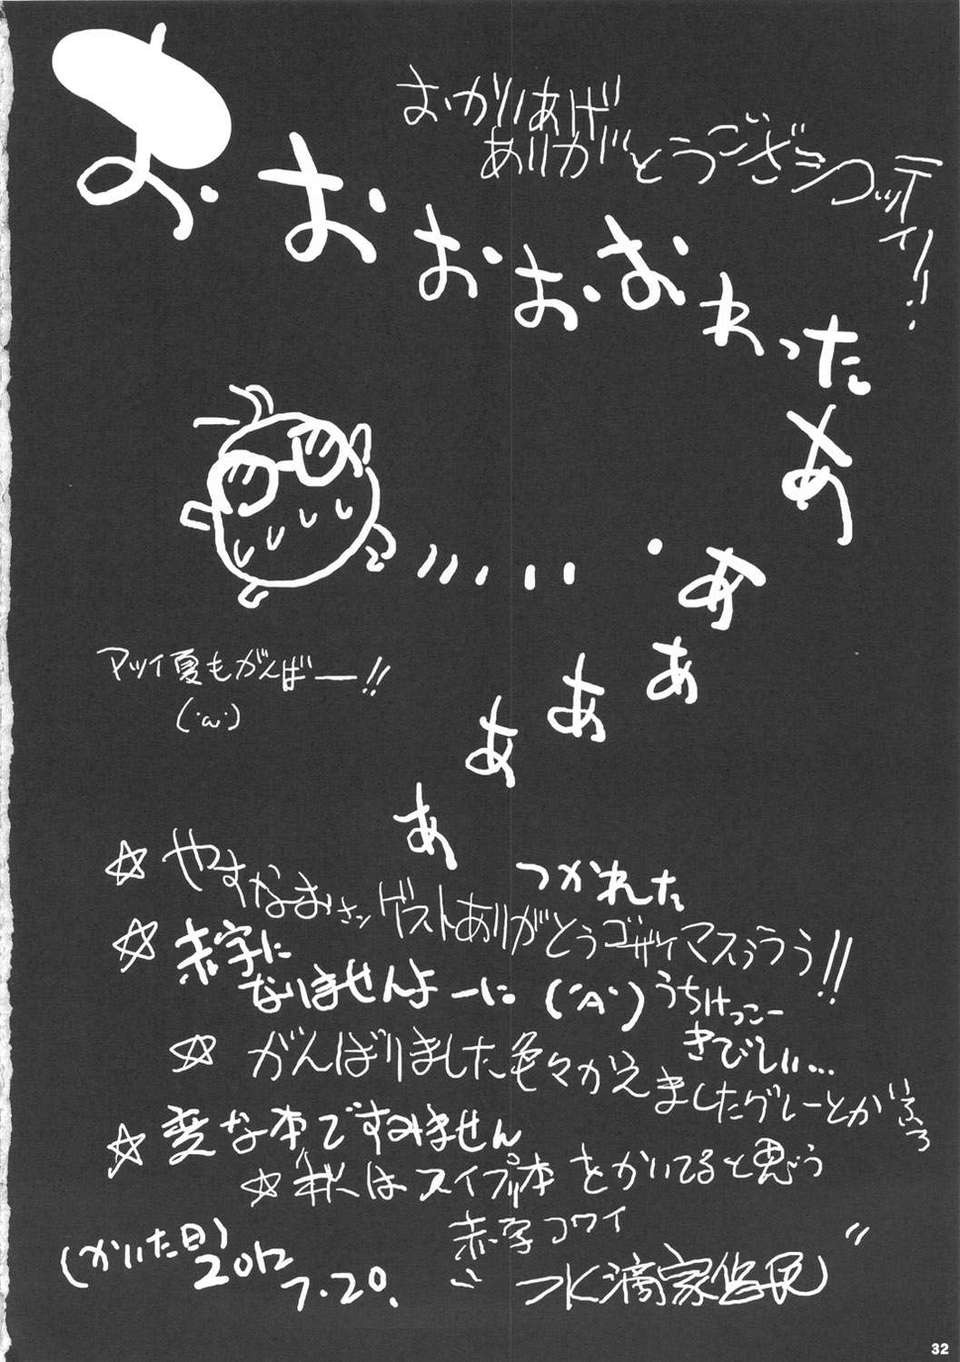 おかいあげ
ありがとうござシコッティ!!
お・おおお・おわったああぁぁぁぁ
アツイ夏もがんばー!!
つかれた
☆やすなおさンゲストありがとうゴザイマスぅぅぅ!!
☆赤字に
なりませんよーに(´A`)うちけっこー
きびしい…
☆がんばりました色々かえましたグレーとか
☆変な本ですみません
☆私はスイプリ本をかいてると思う
赤字コワイ
(かいた日)2012
7.20.
水滴家
32